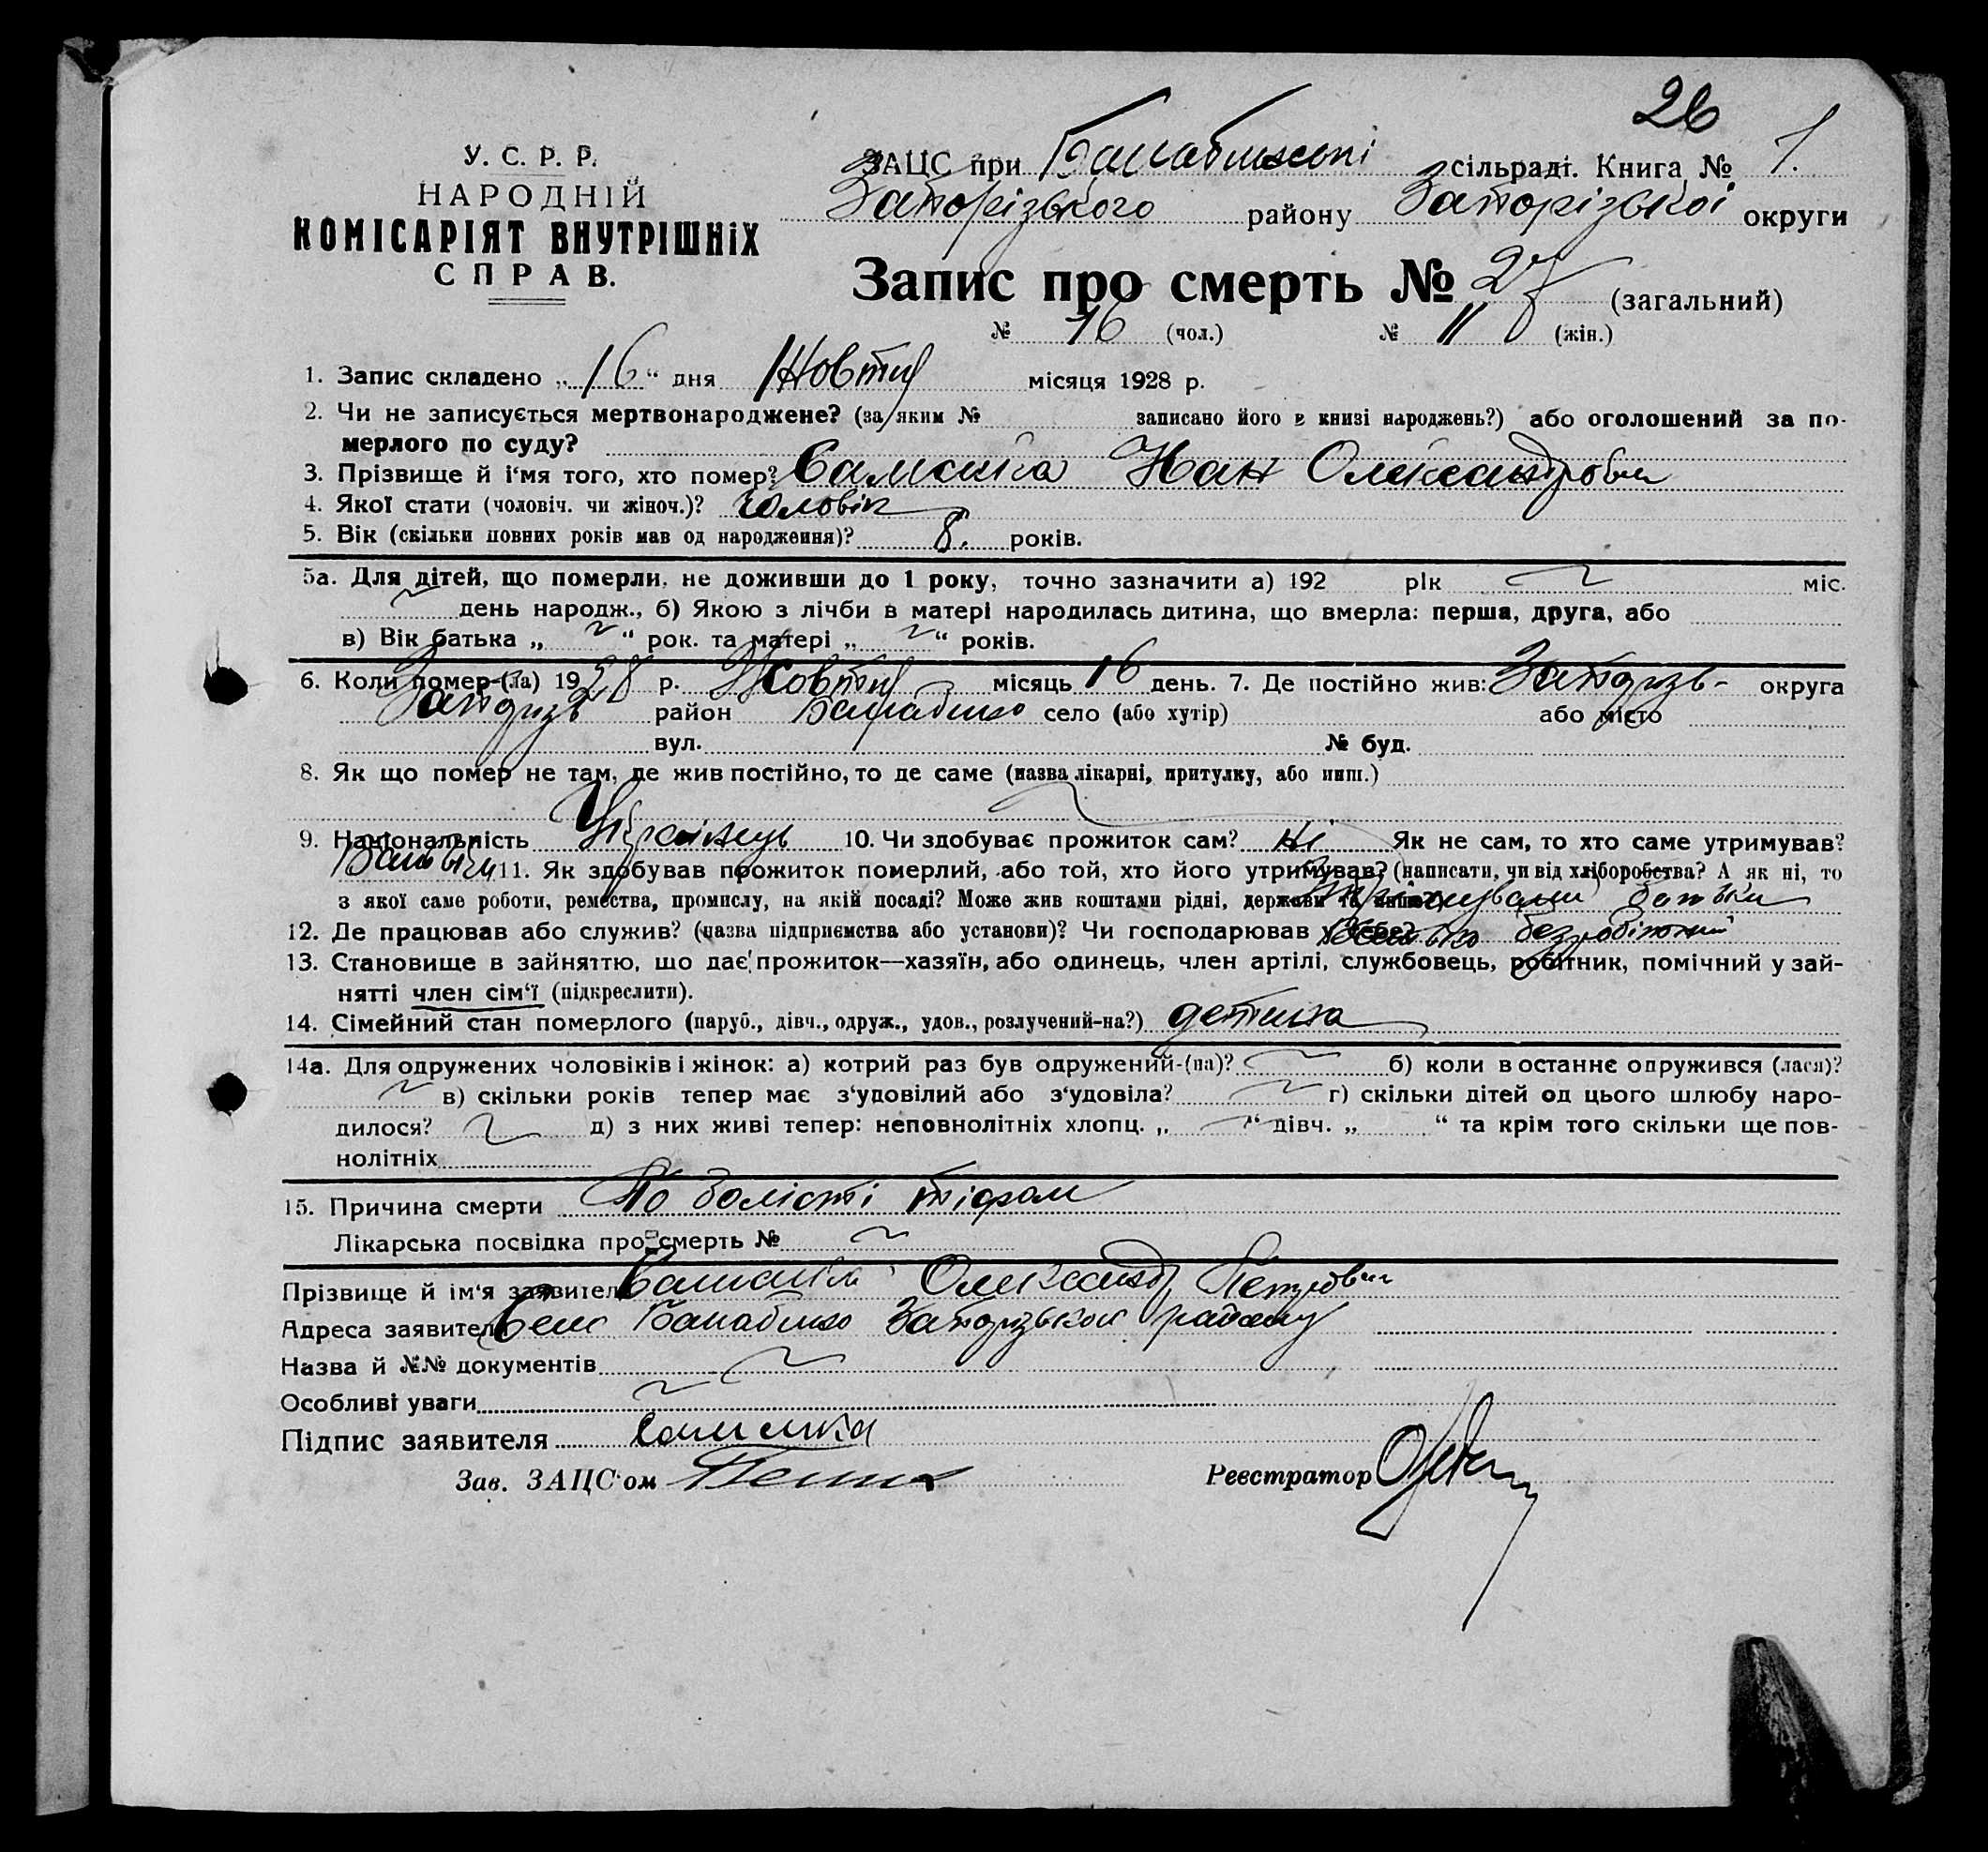 26
У. С. Р. Р.
НАРОДНІЙ
КОМІСАРІЯТ ВНУТРІШНІХ
СПРАВ.
ЗАЦС при сільраді. Книга № 1.
Запорізького району Запорізької округи
Запис про смерть № 27 (загальний)
№ 16 (чол.) № 11 (жін.)
1. Запис складено „16“ дня Жовтня місяця 1928 р.
2. Чи не записується мертвонароджене? (за яким № записано його в книзі народжень?) або оголошений за по-
мерлого по суду?
3. Прізвище й і‘мя того, хто помер? Олександрович
4. Якої статі (чоловіч. чи жіноч.)? чоловік
5. Вік (скільки повних років мав од народження)? 8. років.
5а. Для дітей, що померли, не доживши до 1 року, точно зазначити а) 192 рік ~ міс.
~ день народж., б) Якою з лічби в матері народилась дитина, що вмерла: перша, друга, або
в) Вік батька „ ~ “ рок. та матері „ ~ “ років.
6. Коли помер-(ла) 1928 р. Жовтня місяць 16 день. 7. Де постійно жив: Запорізь- округа
Запорізь район село (або хутір) або місто
вул. № буд.
8. Як що помер не там, де жив постійно, то де саме (назва лікарні, притулку, або инш.)
~
9. Національність Українець 10. Чи здобуває прожиток сам? ні Як не сам, то хто саме утримував?
Батьки 11. Як здобував прожиток померлий, або той, хто його утримував? (написати, чи від хліборобства? А як ні, то
з якої саме роботи, ремества, промислу, на якій посаді? Може жив коштами рідні, держави та инше) утримували батьки
12. Де працював або служив? (назва підприємства або установи)? Чи господарював у себе? батько безробітний
13. Становище в зайняттю, що дає прожиток—хазяїн, або одинець, член артілі, службовець, робітник, помічний у зай-
нятті член сім‘ї (підкреслити).
14. Сімейний стан померлого (паруб., дівч., одруж., удов., розлучений-на?) детина
14а. Для одружених чоловіків і жінок: а) котрий раз був одружений-(на)? ~ б) коли в останнє одружився (лася)?
~ в) скільки років тепер має з‘удовілий або з‘удовіла? ~ г) скільки дітей од цього шлюбу наро-
дилося? ~ д) з них живі тепер: неповнолітніх хлопц. „ ~ “ дівч. „ “ та крім того скільки ще пов-
нолітніх
15. Причина смерти По болісті тіфом
Лікарська посвідка про смерть № ~
Прізвище й ім‘я заявителя Олександр Петрович
Адреса заявителя Село району
Назва й №№ документів ~
Особливі уваги ~
Підпис заявителя
Зав. ЗАЦС‘ом
Реєстратор